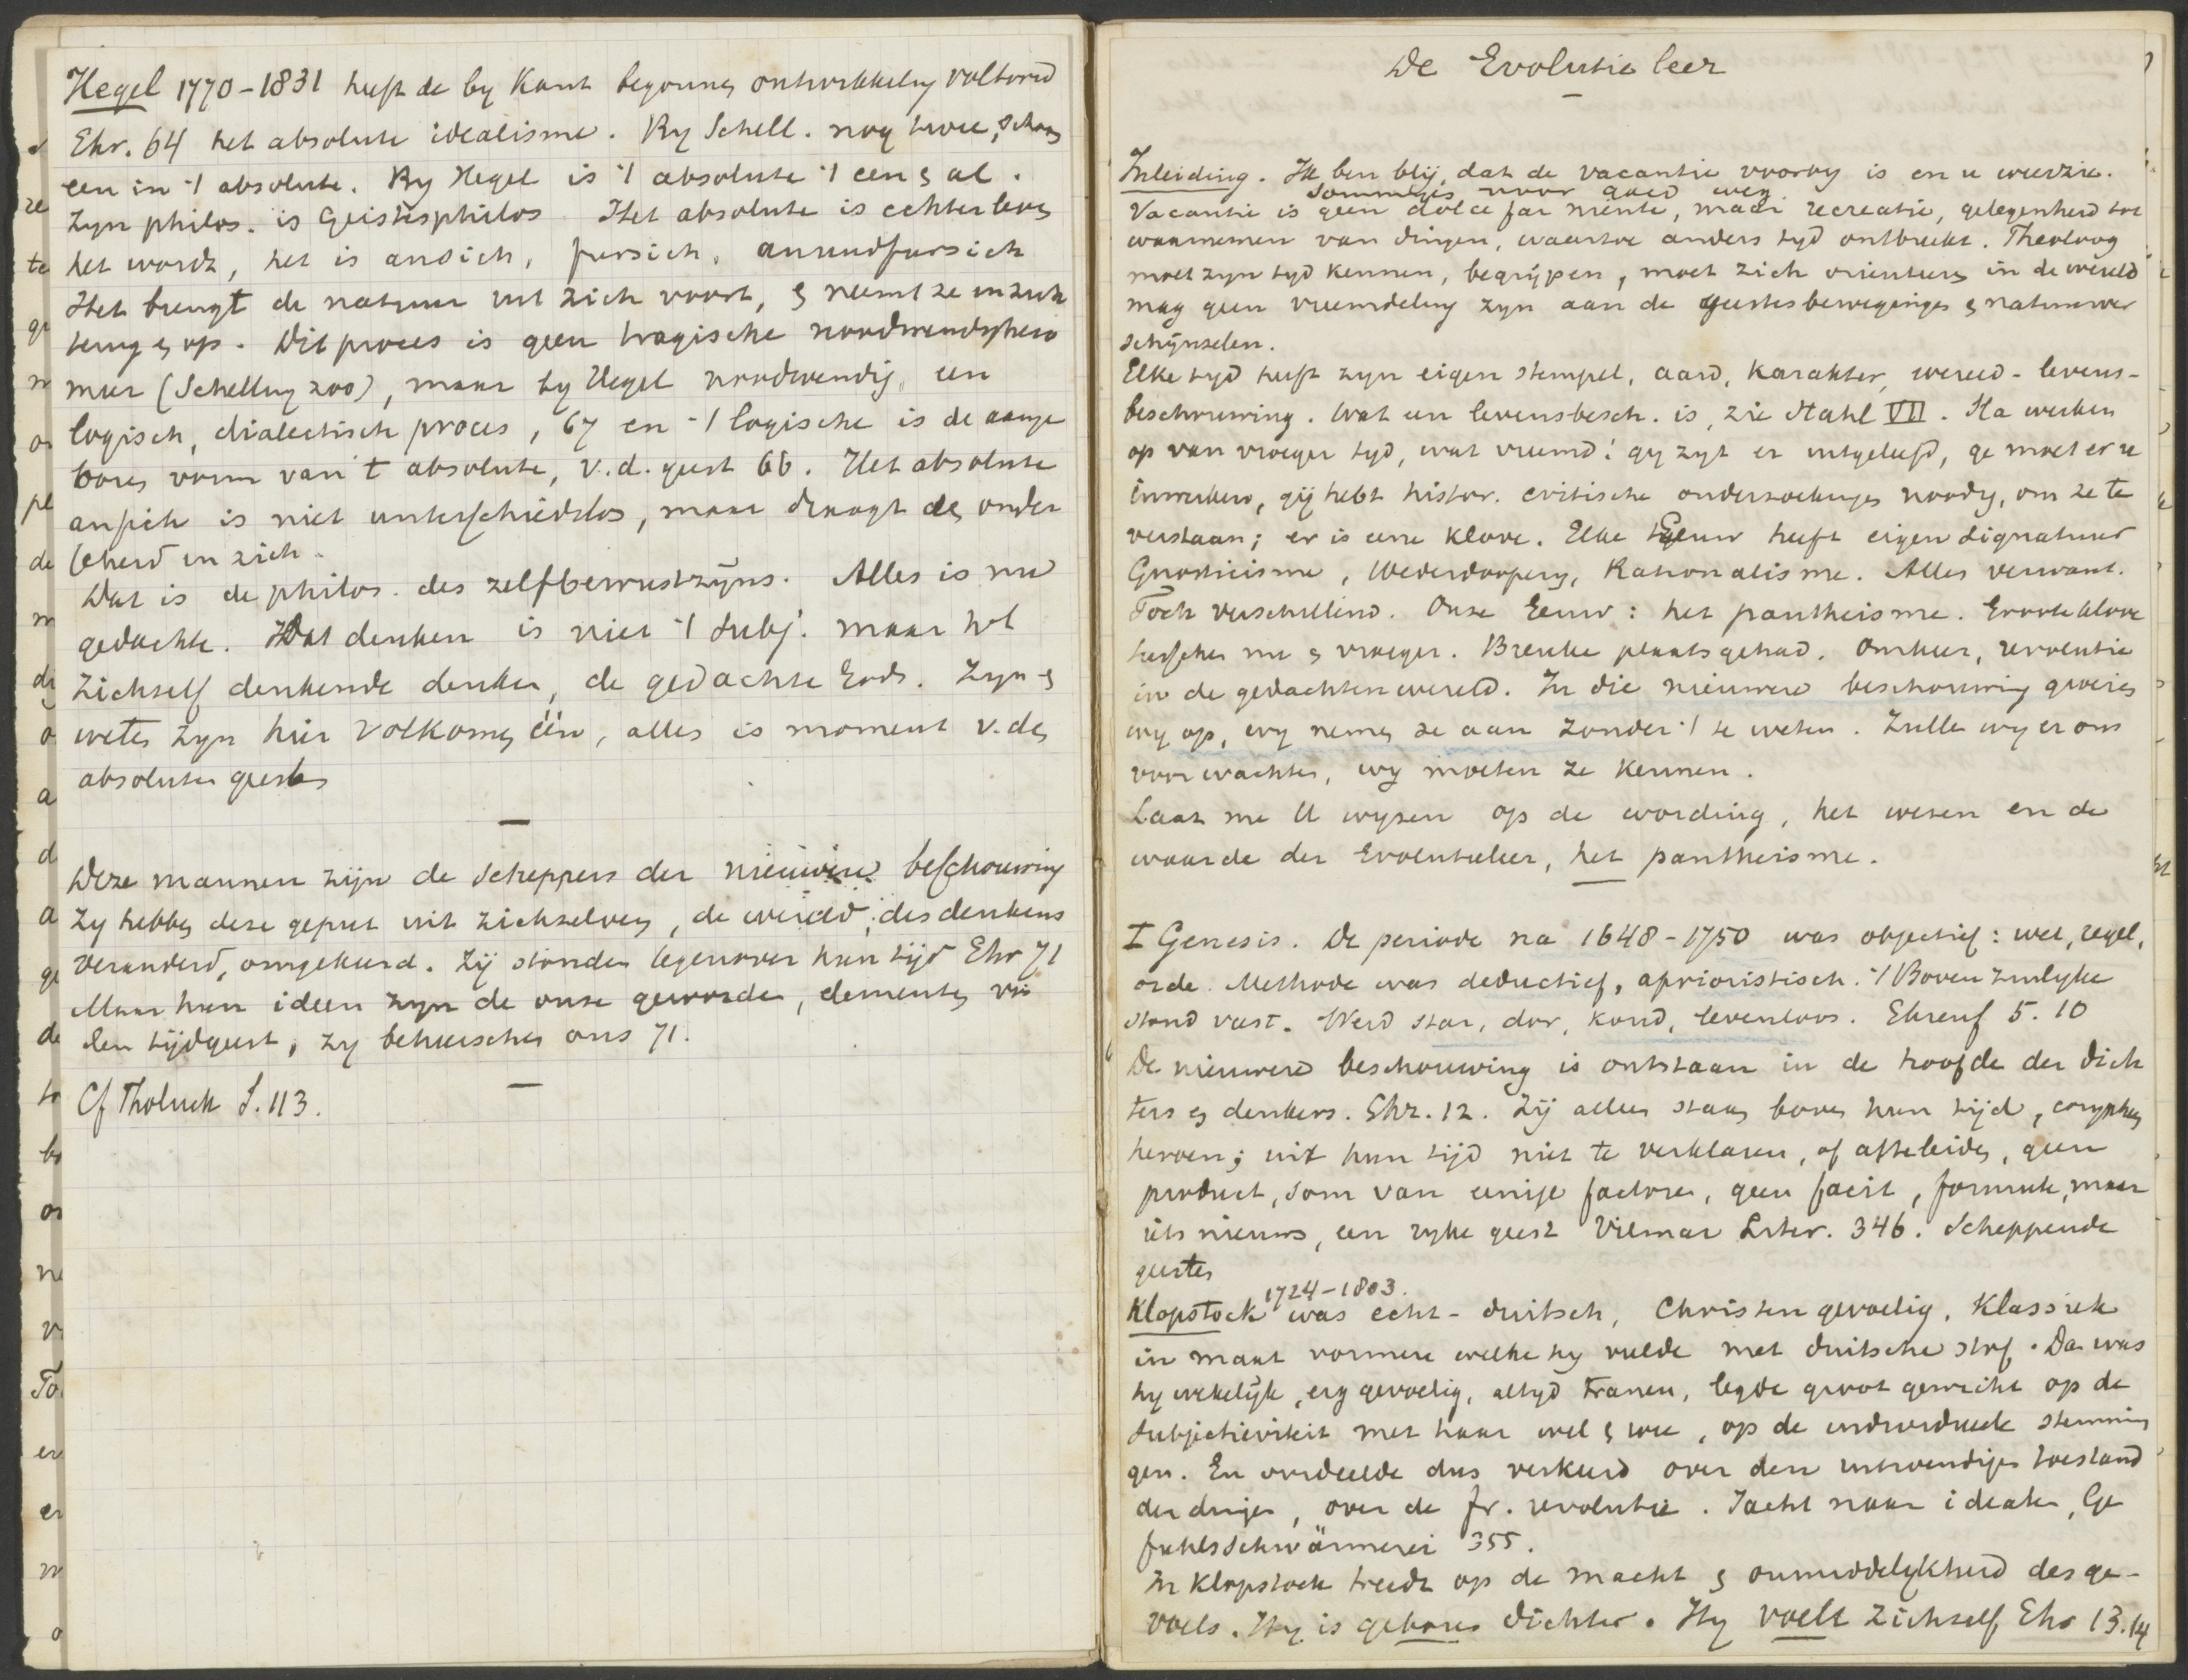 Hegel 1770-1831 heeft de by Kant begonnen ontwikkeling voltooid
Ehr. 64 het absolute idealisme. By Schell. nog twee, schoon
een in 't absolute. By Hegel is 't absolute 't een & al.
Zyn philos. is Geistesphilos Het absolute is echter leven
het wordt, het is ansich, fursich, anundfursich
Het brengt de natuur uit zich voort, & neemt ze in zich
terug & op. Dit proces is geen tragische noodwendigheid
meer (Schelling zoo), maar by Hegel noodwendig, een
logisch, dialectisch proces, 67 en 't logische is de aange
boren vorm van 't absolute, v.d. geest 66. Het absolute
ansich is niet unterschiedslos, maar draagt de onder
scheid in zich.
Dat is de philos. des zelfbewustzijns. Alles is nu
gedachte. Dat denken is niet 't subj. maar het
zichzelf denkende denken, de gedachte Gods. Zyn &
weten zyn hier volkomen één, alles is moment v. den
absoluten geest
Deze mannen zijn de scheppers der nieuwere beschouwing
Zy hebben deze geput uit zichzelven, de wereld des denkens
veranderd, omgekeerd. Zij stonden tegenover hun tijd Ehr 71
Maar hun ideen zyn de onze geworden, elementen van
den tijdgeest, zy beheerschen ons 71.
Cf Tholuck S. 113.
De Evolutie leer
Inleiding. Ik ben blij, dat de vacantie voorby is en u weerzie.
sommigen voor goed weg
Vacantie is geen dolce far niente, maar recreatie, gelegenheid tot
waarnemen van dingen, waartoe anders tyd ontbreekt. Theoloog
moet zyn tyd kennen, begrijpen, moet zich orienteren in de wereld
mag geen vreemdeling zyn aan de geestesbewegingen & natuurver
schijnselen.
Elke tyd heeft zyn eigen stempel, aard, karakter, wereld- levens-
beschouwing. Wat een levensbesch. is, zie Stahl VII. Sla werken
op van vroeger tyd, wat vreemd! gy zyt er uitgeleefd, ge moet er u
inwerken, gij hebt histor. critische onderzoekingen noodig, om ze te
verstaan; er is eene klove. Elke Eeuw heeft eigen signatuur
Gnosticisme, Wederdoopery, Rationalisme. Alles verwant.
Toch verschillend. Onze Eeuw: het pantheisme. Groote klove
tusschen nu & vroeger. Breuke plaatsgehad. Omkeer, revolutie
in de gedachtenwereld. In die nieuwere beschouwing groeien
wy op, wy nemen ze aan zonder 't te weten. Zullen wy er ons
voor wachten, wy moeten ze kennen.
Laat me U wyzen op de wording, het wezen en de
waarde der Evolutieleer, het pantheisme.
I Genesis. De periode na 1648-1750 was objectief: wet, regel,
orde. Methode was deductief, aprioristisch. 't Bovenzinlyke
stond vast. Werd star, dor, koud, levenloos. Ehrenf 5. 10
De nieuwere beschouwing is ontstaan in de hoofde der dich
ters & denkers. Ehr. 12. Zij allen staan boven hun tijd, corypheen
heroen; uit hun tijd niet te verklaren, of afteleiden, geen
product, som van eenige factoren, geen facit, formule, maar
iets nieuws, een ryke geest Vilmar Liter. 346. Scheppende
geesten
1724-1803.
Klopstock was echt-duitsch, Christen gevoelig, Klassiek
in maat vormen welke hy vulde met duitsche stof. Dan was
hy wekelijk, erg gevoelig, altyd tranen, legde groot gewicht op de
subjectiviteit met haar wel & wee, op de individueele stemmin
gen. En oordeelde dus verkeerd over den uitwendigen toestand
der dingen, over de fr. revolutie. Jacht naar idealen, Ge
fuhlsschwärmerei 355.
In Klopstock treedt op de macht & onmiddelykheid des ge-
voels. Hy is geboren dichter. Hy voelt zichzelf Ehr 13.14